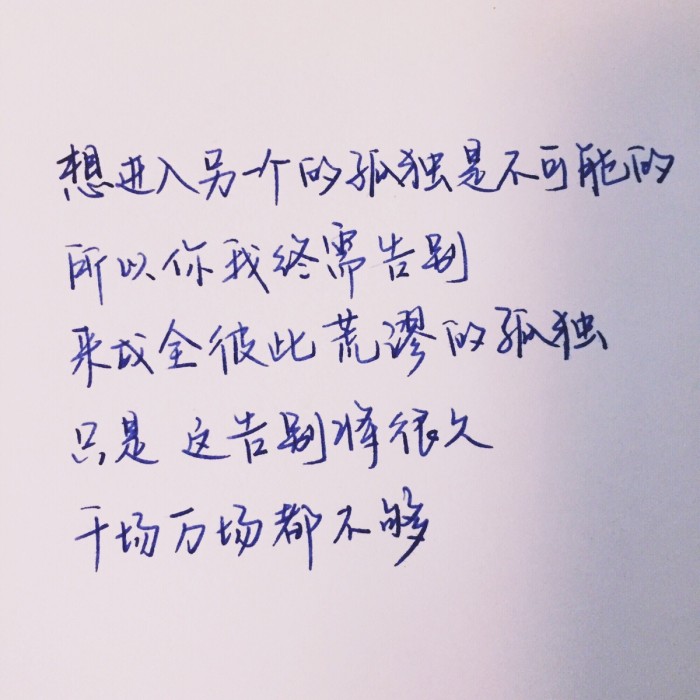 想进入另一个的孤独是不可能的
所以你我终需告别
来成全彼此荒谬的孤独
只是 这告别将很久
千场万场都不够